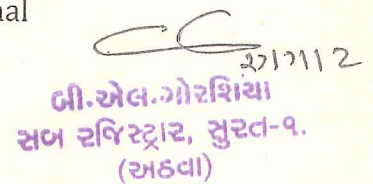 nal
બી.એલ.ગોરશિયા
સબ રજિસ્ટ્રાર, સુરત-૧.
(અઠવા)